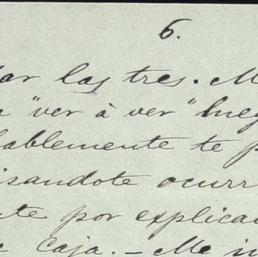 6.
dar las tres. M
"ver á ver" lueg
ablemente te p
isandote ocurr
te por explica
Caja. – Me